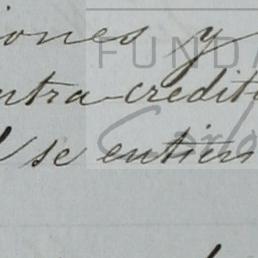 iones y
ntra-credit
se entien
FUNDA
Carlo